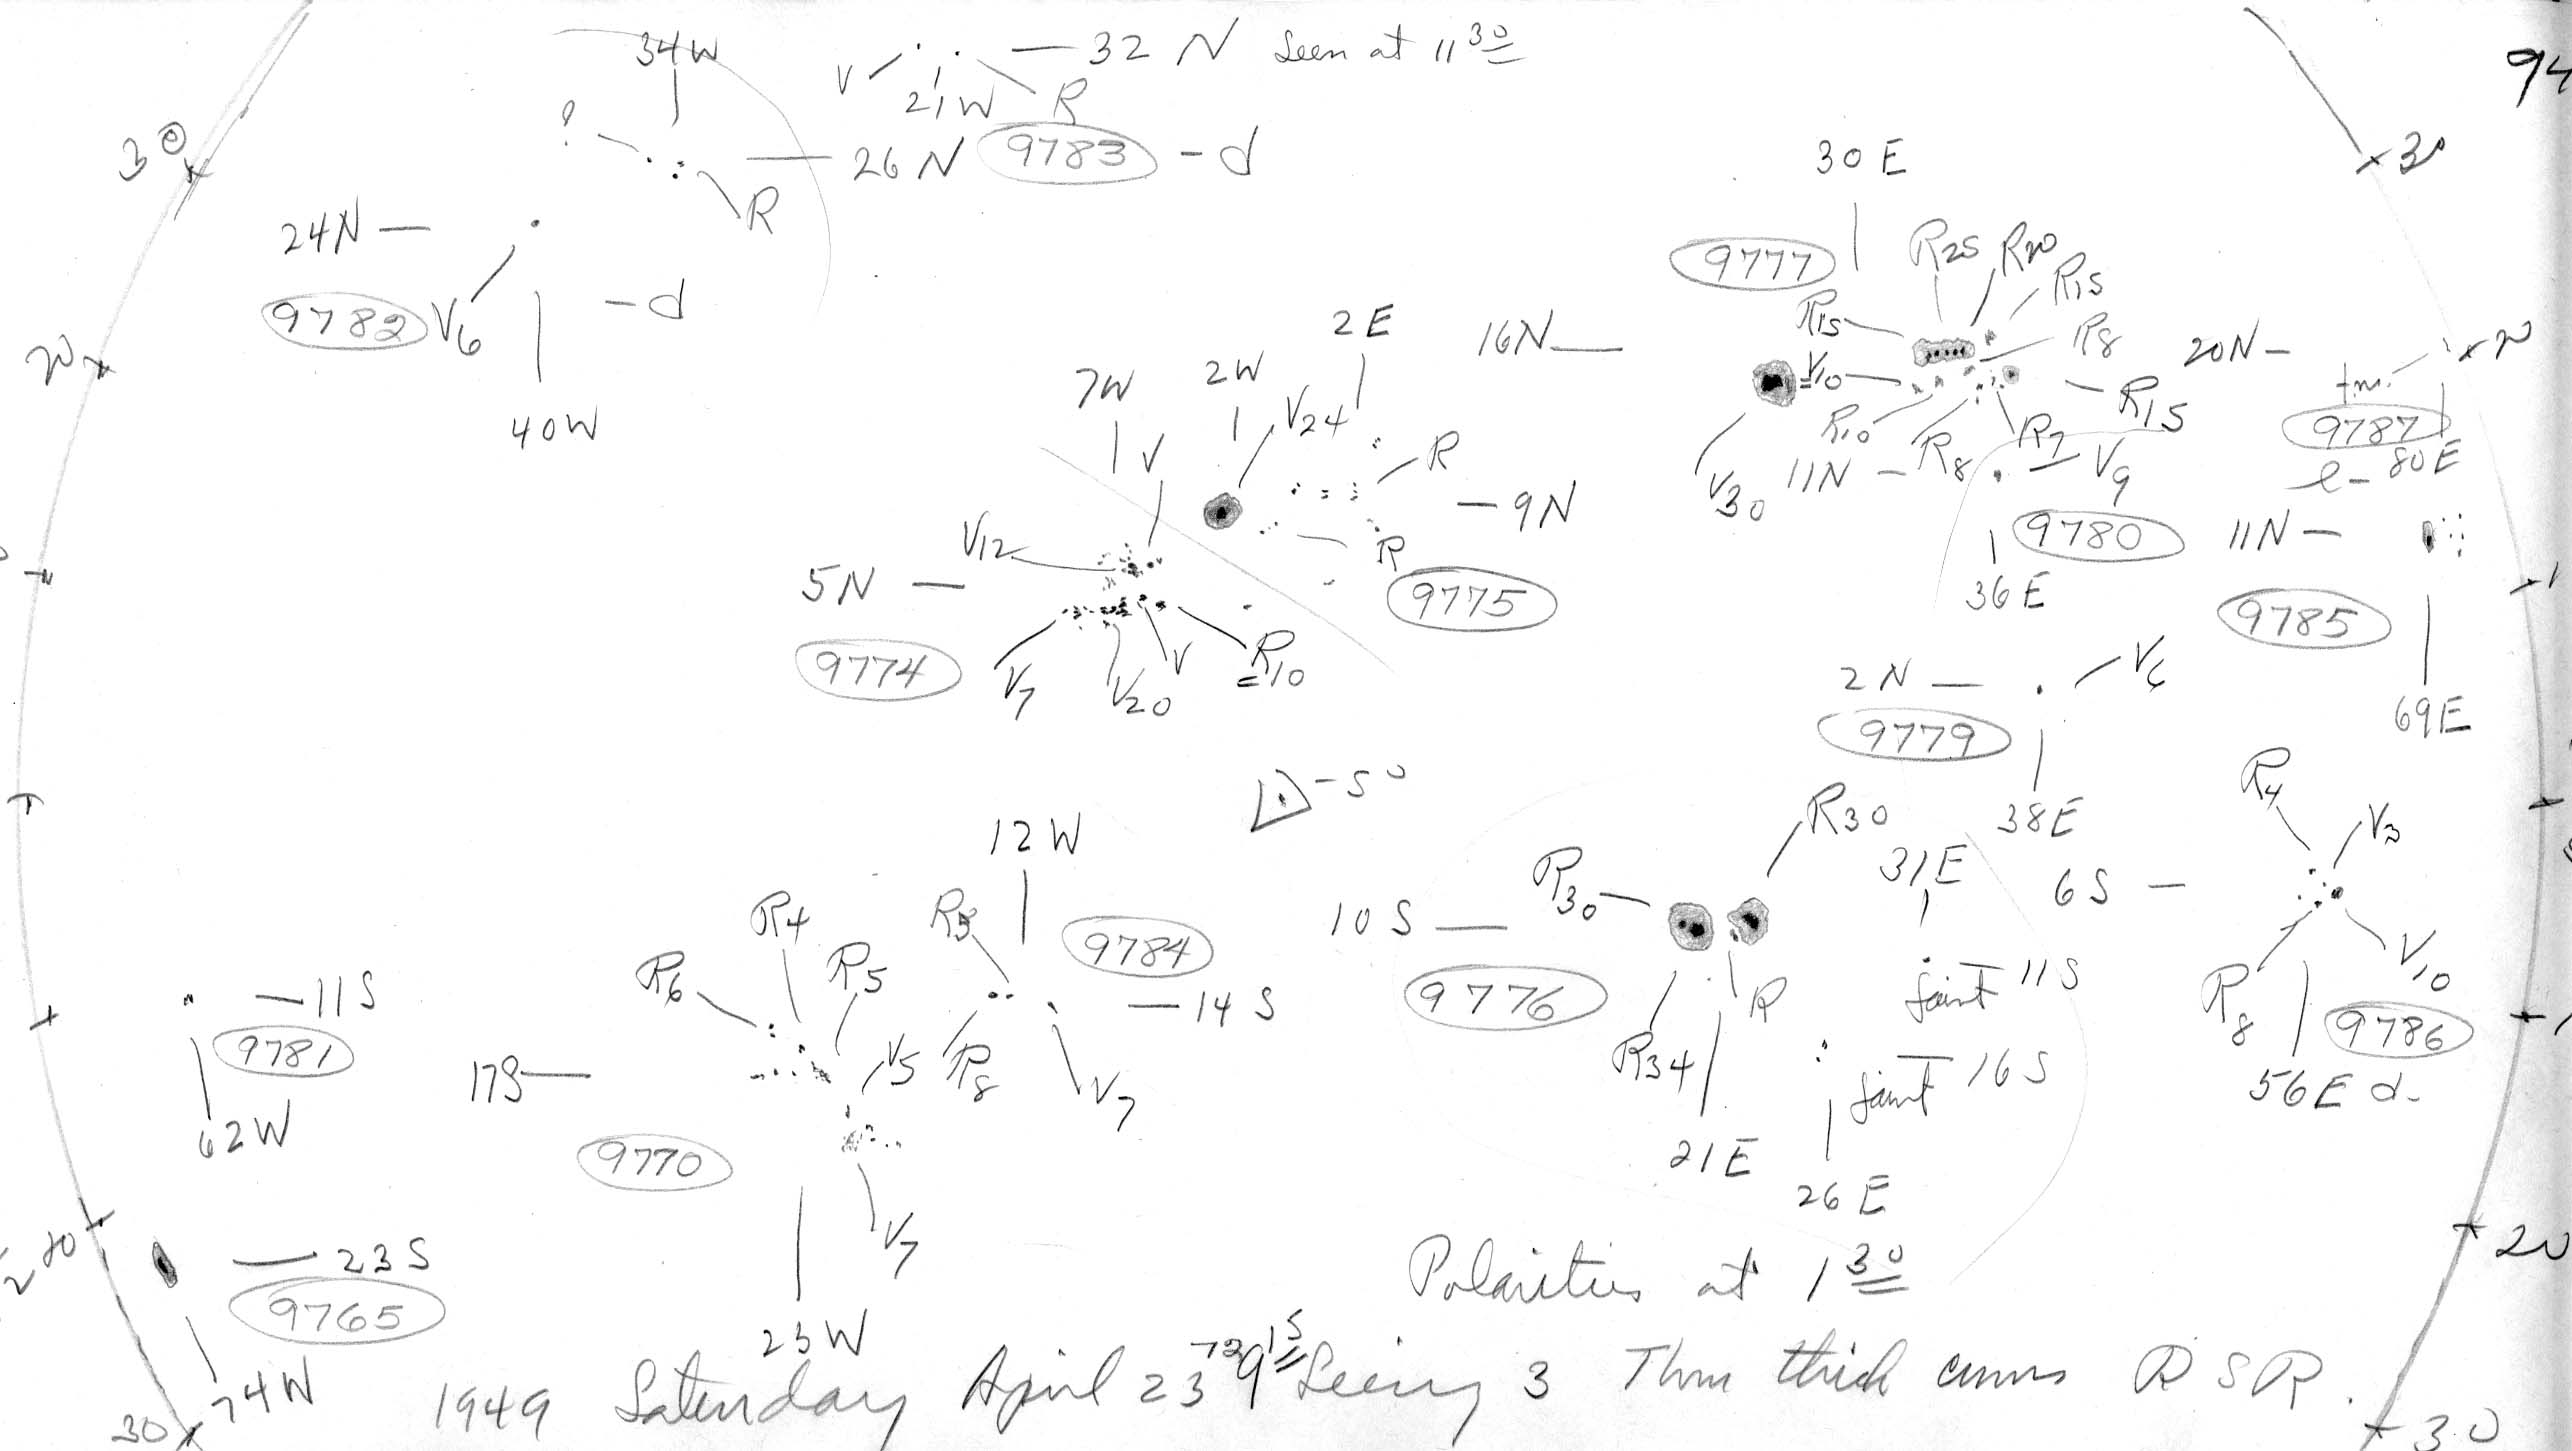 34W
V
32 N Seen at 11 30
21W
R
94
?
26 N
9783
- d
30
30
R
24N
9782
V6
- d
40W
30 E
9777
R25
R20
R15
R15
R8
16N
V10
R15
R10
R8
R7
V30
20N
20
20
9787
80E
11N
V9
9780
36 E
11N
9785
69E
2 E
2W
7W
V
V24
R
9N
R
9775
V12
5N
9774
V7
V20
V
R10
2 N
V6
9779
38E
-5°
12 W
R30
R30
31E
R4
V3
6S
10 S
9776
R4
R3
9784
R6
R5
14 S
V5
R8
V7
R34
R
faint 11S
faint 16S
21E
26 E
R8
V10
9786
56E d-
11S
9781
62W
17S
9770
V7
23W
20
23S
9765
74W
30
20
30
Polarities at 1 30
1949 Saturday April 23 9 15 Seeing 3 Thru thick cirrus R S R.